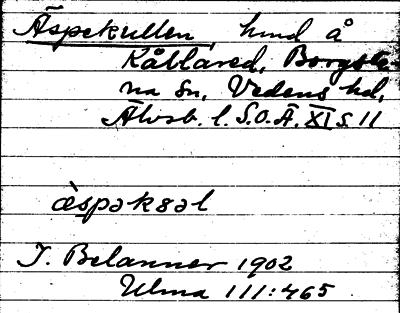 Äspekullen, hmd å
Kåblared, Borgste-
na sn, Vedens hd,
Älvsb. l. S.O.Ä. XI s. 11
æ̀spəkəəl
J. Belanner 1902
Ulma 111:465